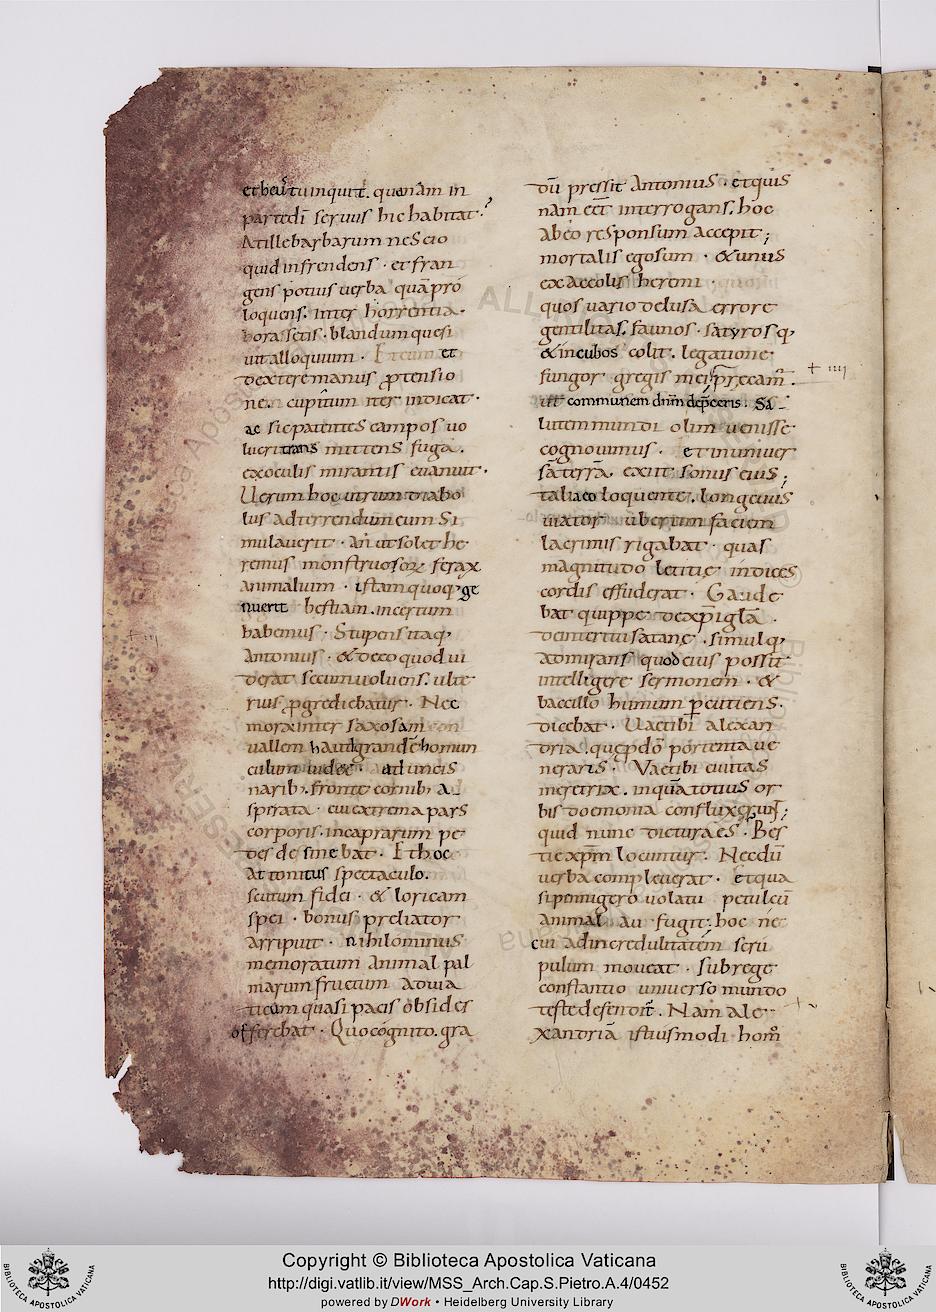 et heus tu inquit. quanam in
parte di seruus hic habitat?
At ille barbarum nescio
quid infrendens · et fran
gens potius uerba quā pro
loquens. inter horrentia
hora setis · blandum quesi
uit alloquium · Et cum et
dextere manus ꝓtensio
ne. cupitum iter indicat ·
ac sic patentes campos uo
lucri trans mittens fuga.
ex oculis mirantis euanuit ·
Uerum hoc utrum diabo
lus ad terrendum eum si
mulauerit · an ut solet he
remus monstruosoꝝ ferax
animalium · istam quoq; ge
nuerit bestiam. incertum
habemus · Stupens itaq;
Antonius · & de eo quod ui
derat secum uoluens. ulte
rius ꝓgrediebatur · Nec
mora inter saxosam con
uallem haut grandē homun
culum uidet · aduncis
narib; fronte cornib; a_
sperata · cui extrema pars
corporis. in caprarum pe
des desinebat · Et hoc
Attonitus spectaculo.
scutum fidei · & loricam
spei · bonus preliator
arripuit · nihilominus
memoratum animal pal
marum fructum ad uia
ticum quasi pacis obsides
offerebat · Quo cognito. gra
dū pressit Antonius · et quis
nam eēt interrogans. hoc
ab eo responsum accepit;
mortalis ego sum · & unus
ex accolis heremi ·
quos uario delusa errore
gentilitas. faunos · satyrosq;
& incubos colit. legatione
fungor gregis mei. precam̄ .
+ IIII
ut communem dn̄m dep̄ceris. Sa_
lutem mundi olim uenisse
cognouimus · et in uniuer
sā terrā. exiit sonus eius;
talia eo loquente. longeuus
uiator ubertim faciem
lacrimis rigabat · quas
magnitudo letitię indices
cordis effuderat · Gaude
bat quippe de xp̄i glā ·
de interitu satanę. simulq;
admirans quod eius possit
intelligere sermonem · &
bacillo humum percutiens ·
dicebat · Uae tibi alexan
dria. quę ꝓ dō portenta ue
neraris · Vae tibi ciuitas
meretrix. in quā totius or
bis doemonia confluxerunt;
quid nunc dictura es · Bes
tie xp̄m locuntur · Necdū
uerba compleuerat · et qua
si pennigero uolatu petulcū
animal au fugit. hoc ne
cui ad incredulitatem scru
pulum moueat · sub rege
constantio uniuerso mundo
teste defendit̄ . Nam ale
xandriā istiusmodi hom̄
Copyright © Biblioteca Apostolica Vaticana
http://digi.vatlib.it/view/MSS_Arch.Cap.S.Pietro.A.4/0452
powered by DWork • Heidelberg University Library